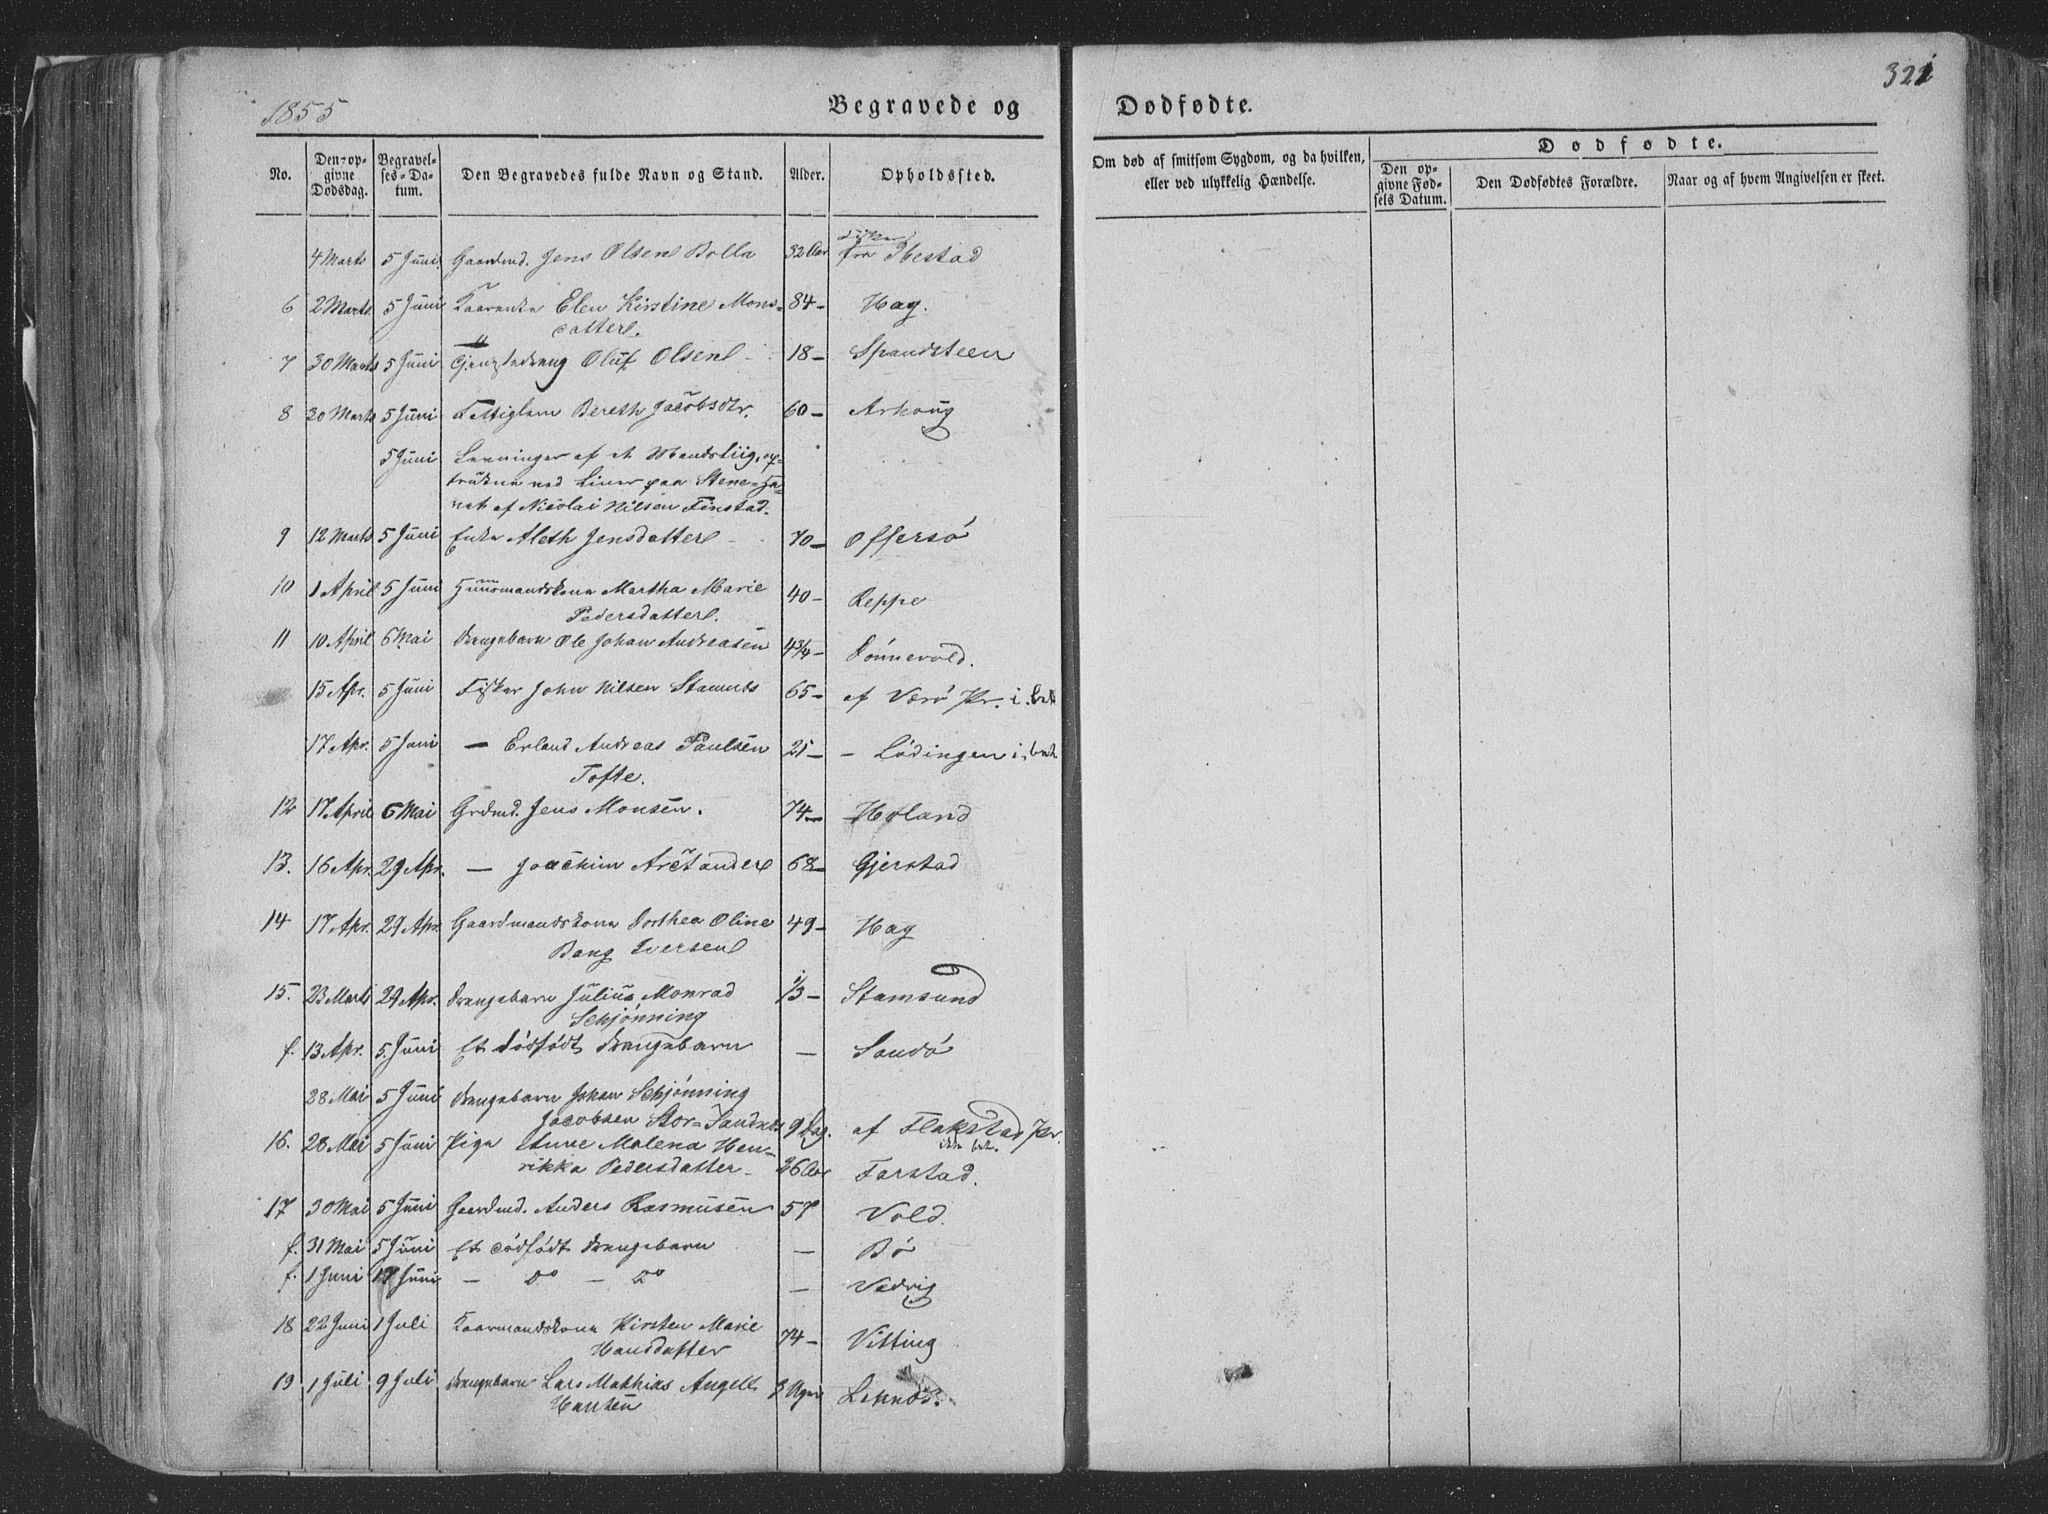 1855
Begravede og
Dødfødte.
321
No.
Den op-
givne
Dødsdag.
Begravel-
ses-Da-
tum.
Den Begravedes fulde Navn og Stand.
Alder.
Opholdssted.
Om død af smitsom Sygdom, og da hvilken,
eller ved ulykkelig Hændelse.
Dødfødte.
Den op-
givne Fød-
sels Datum.
Den Dødfødtes Forældre.
Naar og af hvem Angivelsen er skeet.
4 Marts 5 Juni Gaardmd. Jens Olsen Bolla 32 Aar fra Ibestad
6 2 Marts 5 Juni Kaarenke Elen Kirstine Mons- 84 - Hag.
datter.
7 30 Marts 5 Juni Oluf Olsen - 18 - Spandsteen
8 30 Marts 5 Juni Fattiglem Bereth Jacobsdtr. 60 -
5 Juni Levninger af et Mandsliig, op-
ved Liner paa Stene-Ha-
vet af Nicolai Nilsen Finstad.
9 12 Marts 5 Juni Enke Aleth Jensdatter - 70 - Offersø
10 1 April 5 Juni Huusmandskone Martha Marie 40 - Reppe
Pedersdatter.
11 10 April 6 Mai Drengebarn Ole Johan Andreasen 4 3/4 - Dønnevold.
15 Apr. 5 Juni Fisker John Nilsen 65 - af Værø Pr. i. bet
17 Apr. 5 Juni - Erland Andreas Paulsen 21 - - Lødingen i. bet
Tofte.
12 17 April 6 Mai Grdmd. Jens Monsen. 74 - Holand
13. 16 Apr. 29 Apr. - Joachim Arctander 68 - Gjerstad
14 17 Apr. 29 Apr. Gaardmandskone Dorthea Oline 49 - Hag
Bang Iversen
15. 23 Marts 29 Apr. Drengebarn Julius Monrad 1/3 - Stamsund
Schjønning
f. 13 Apr. 5. Juni Et dødfødt Drengebarn - Sandø
28 Mai 5 Juni Drengebarn Johan Schjønning
Jacobsen Stor-Sandnes 9 Dag. af Flakstad Pr.
ikke bet.
16. 28 Mai 5 Juni Pige Anne Malena Hen-
rikka Pedersdatter - 26 Aar Farstad.
17 30 Mai 5 Juni Gaardmd. Anders Rasmusen 57 Vold.
f. 31 Mai 5 Juni Et dødfødt Drengebarn - Bø
f. 1 Juni 17 Juni - Do - Do - Vadvig
18 22 Juni 1 Juli Kaarmandskone Kirsten Marie 74 - Vitting
Hansdatter
19 1 Juli 9 Juli Drengebarn Lars Mathias Angell 3 Uger Leknes.
Hansen